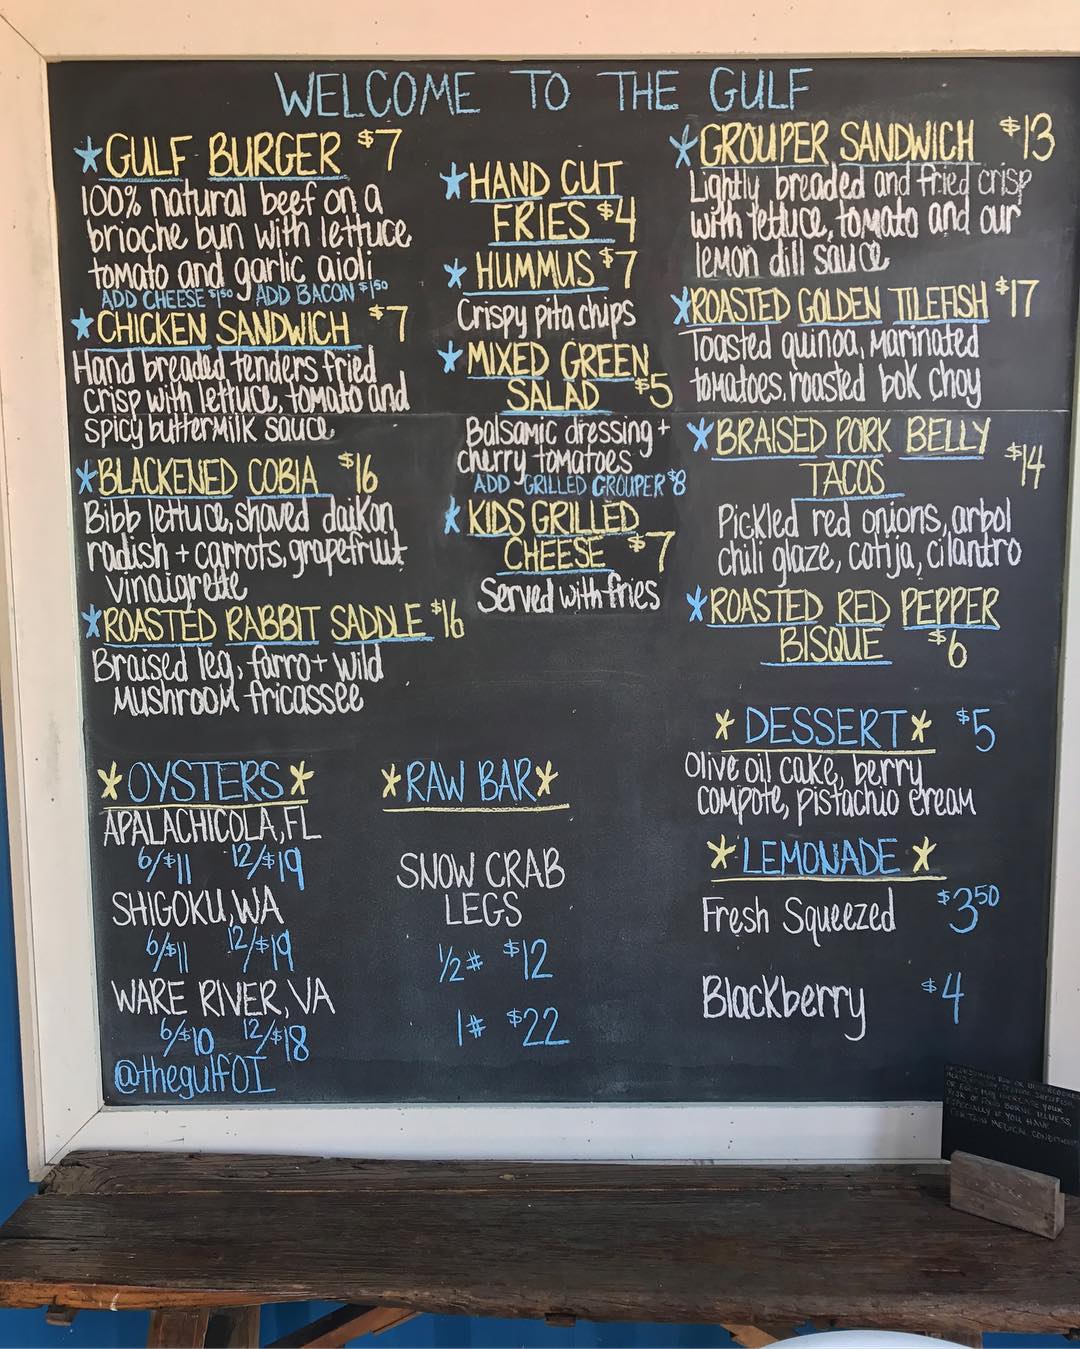 WELCOME TO THE GULF
*GULF BURGER $7
100% natural beef on a
brioche bun with lettuce
tomato and garlic aioli
ADD CHEESE $1.50 ADD BACON $1.50
*CHICKEN SANDWICH $7
Hand breaded tenders fried
crisp with lettuce, tomato and
spicy buttermilk sauce
*BLACKENED COBIA $16
Bibb lettuce, shaved daikon
radish + carrots, grapefruit
vinaigrette
*ROASTED RABBIT SADDLE $16
Braised leg, farro + wild
mushroom fricassee
*HAND CUT
FRIES $4
*HUMMUS $7
Crispy pita chips
*MIXED GREEN
SALAD $5
Balsamic dressing +
cherry tomatoes
ADD GRILLED GROUPER $8
*KIDS GRILLED
CHEESE $7
Served with fries
*GROUPER SANDWICH $13
Lightly breaded and fried crisp
with lettuce, tomato and our
lemon dill sauce
*ROASTED GOLDEN TILEFISH $17
Toasted quinoa, marinated
tomatoes, roasted bok choy
*BRAISED PORK BELLY
TACOS $14
Pickled red onions, arbol
chili glaze, cotija, cilantro
*ROASTED RED PEPPER
BISQUE $6
*DESSERT* $5
Olive oil cake, berry
compote, pistachio cream
*LEMONADE*
Fresh Squeezed $3.50
Blackberry $4
*OYSTERS*
APALACHICOLA, FL
6/$11 12/$19
SHIGOKU, WA
6/$11 12/$19
WARE RIVER, VA
6/$10 12/$18
@thegulfOI
*RAW BAR*
SNOW CRAB
LEGS
1/2# $12
1# $22
OR EGGS MAY INCREASE YOUR
RISK OF FOOD BORNE ILLNESS,
ESPECIALLY IF YOU HAVE
CERTAIN MEDICAL CONDITIONS